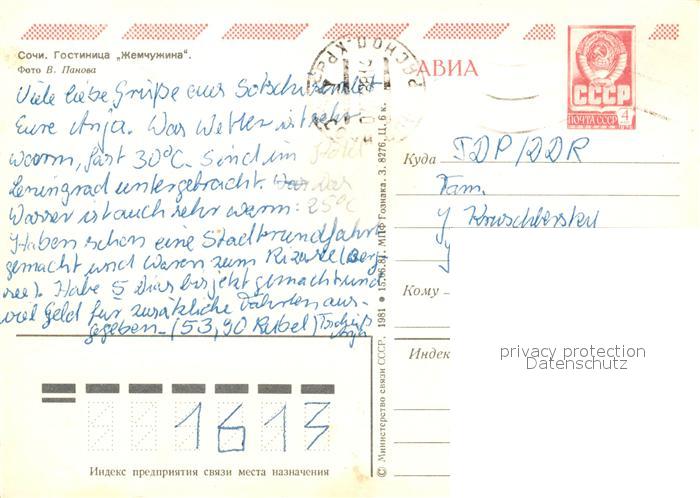 Сочи. Гостиница „Жемчужина“.
Фото В. Панова
АВИА
СССР
ПОЧТА СССР 4
Viele liebe Grüße aus Sotschi sendet
Eure Anja. Das Wetter ist sehr
warm, fast 30°C. Sind im Hotel
Leningrad untergebracht. Das
Wasser ist auch sehr warm: 25°C
Haben schon eine Stadtrundfahrt
gemacht und waren zum (Berg-
see). Habe 5 Dias bis jetzt gemacht und
viel Geld für zusätzliche Fahrten aus-
gegeben - (53,90 Rubel) Tschüß
Anja
Куда ГДР/DDR
Fam.
Кому
Индек
privacy protection
Datenschutz
1613
Индекс предприятия связи места назначения
© Министерство связи СССР. 1981 • 15.06.81. МПФ Гознака. З. 8276. Ц. 6 к.